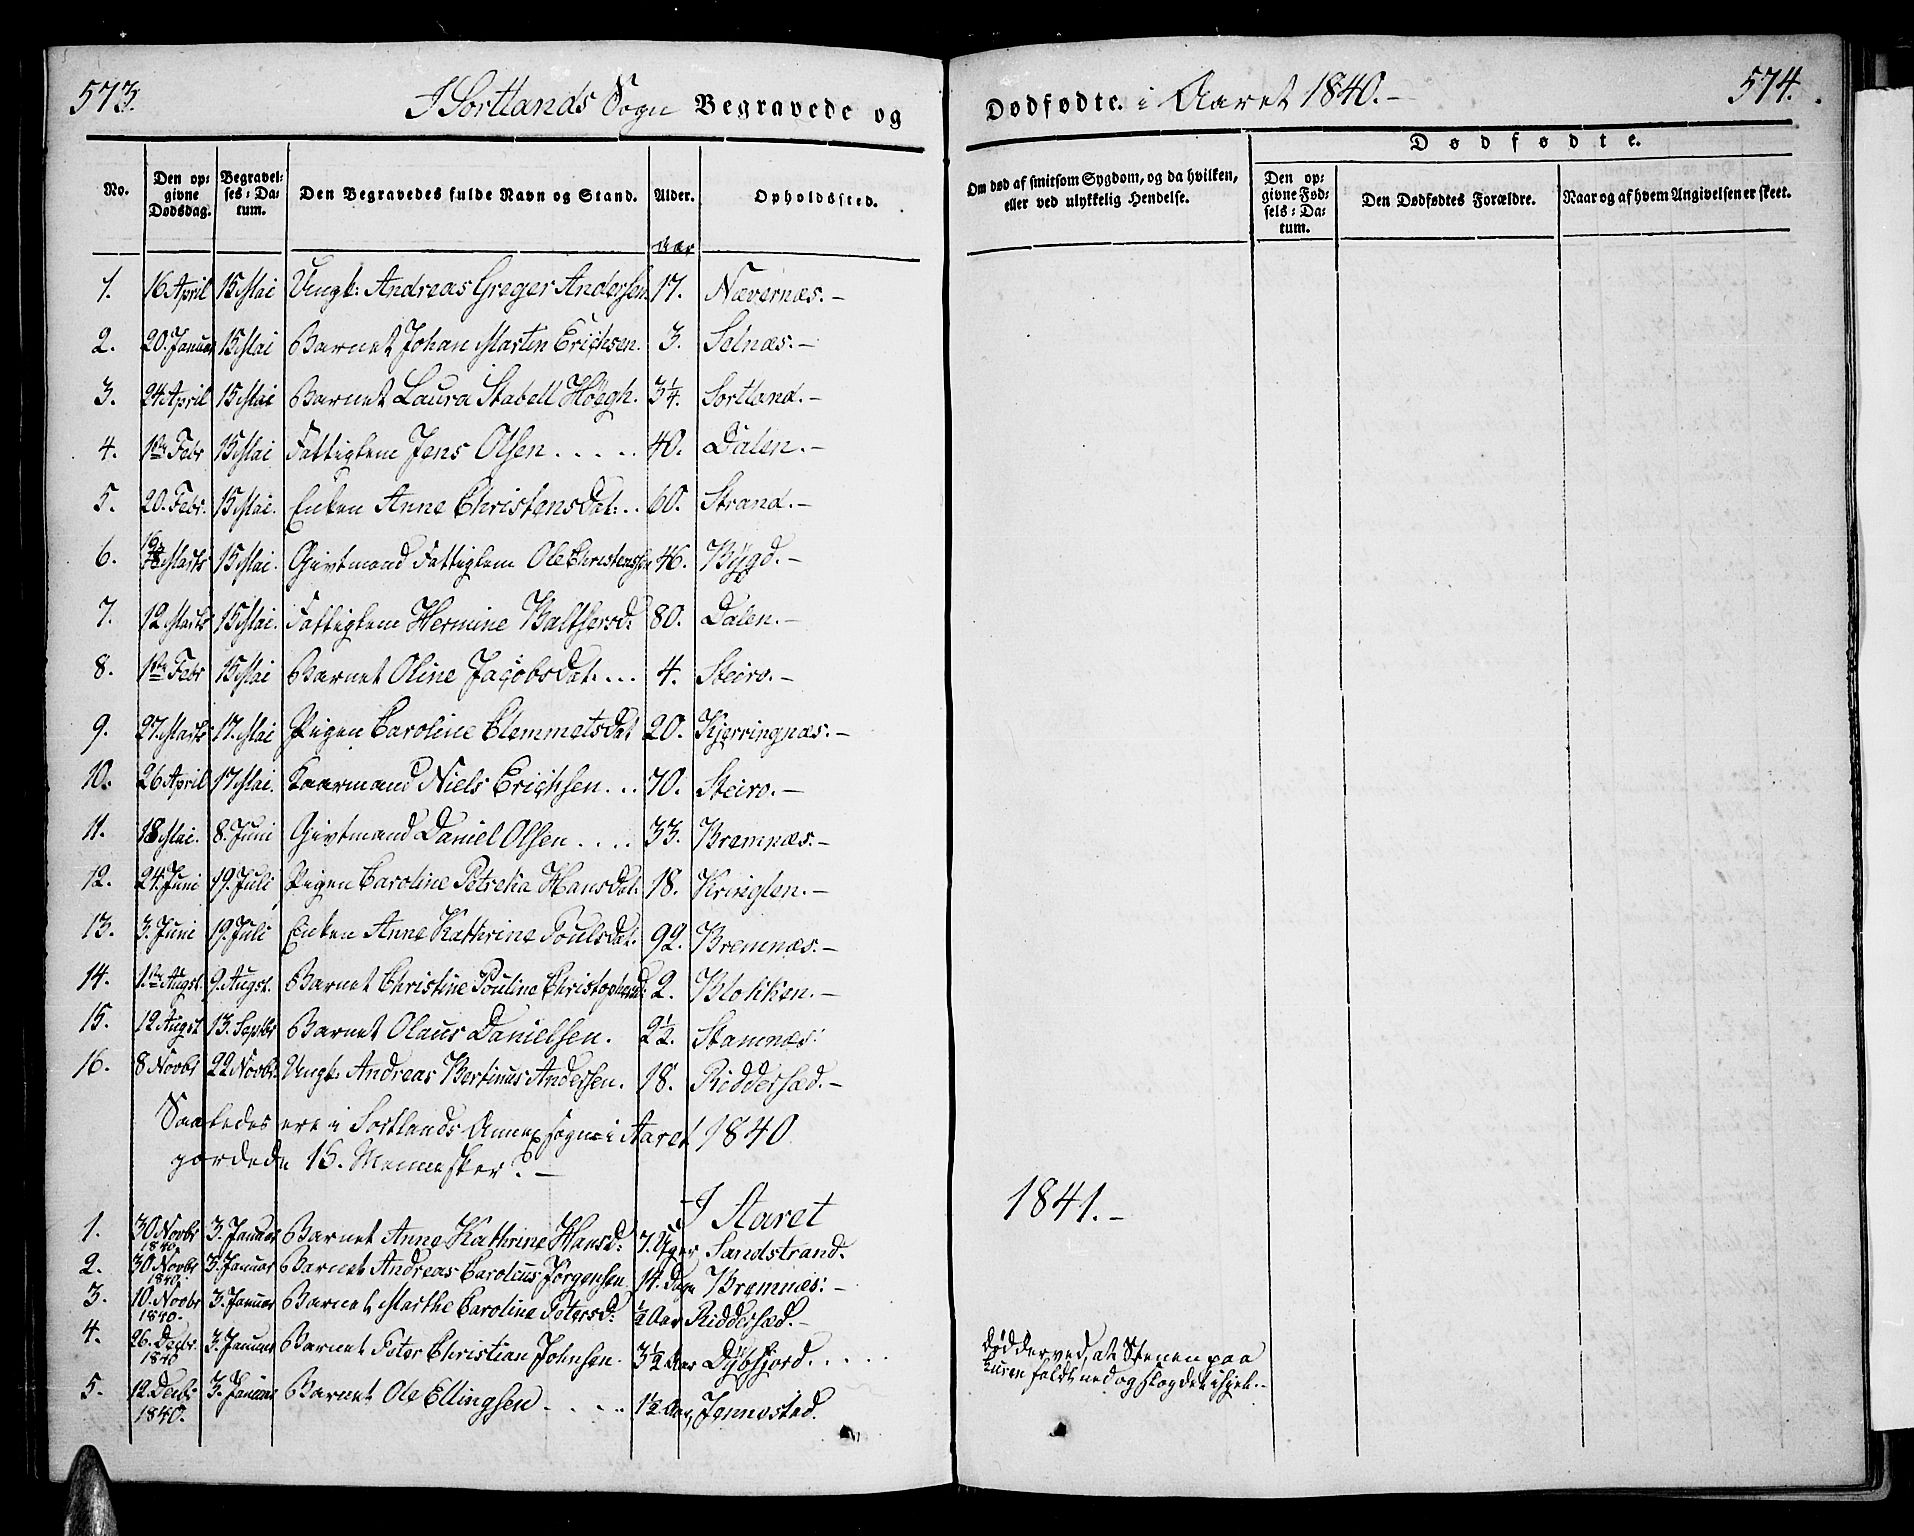 573.
I Sortlands Sogn Begravede og
Dødfødte. i Aaret 1840.-
574.
No.
Den op-
givne
Dødsdag.
Begravel-
ses-Da-
tum.
Den Begravedes fulde Navn og Stand.
Alder.
Opholdssted.
Aar
Om død af smitsom Sygdom, og da hvilken,
eller ved ulykkelig Hendelse.
Dødfødte.
Den op-
givne Fød-
sels-Da-
tum.
Den Dødfødtes Forældre.
Naar og af hvem Angivelsen er skeet.
1. 16 April 15 Mai Ungk: Andreas Greger Andersen 17. Nævernæs.-
2. 20. Januar 15 Mai Barnet Johan Martin Erichsen. 3. Selnæs.-
3. 24 April 15 Mai Barnet Laura Stabell Höegh. 3¼. Sortland.-
4. 1ste Febr 15 Mai Fattiglem Jens Olsen . . . . . 40. Dalen.-
5. 20. Febr. 15 Mai. Enken Anne Christensdat: . . 60. Strand.-
6. Marts 15 Mai. Givtmand Fattiglem Ole Christensen 46. Bÿgd.-
7. 12 Marts 15 Mai. Fattiglem Hermine Baltsersd: 80. Dalen.-
8. 1ste Febr 15 Mai Barnet Oline Jacobsdat. . . . 4. Steiro.-
9. 27. Marts 17. Mai Pigen Caroline Clemmetsdat 20. Kjerringnæs.-
10. 26 April 17 Mai. Kaarmand Niels Erichsen. . . 70. Steiro.-
11. 18 Mai. 8. Juni Givtmand Daniel Olsen . . . . 33. Bremnæs.-
12. 24. Juni 19. Juli Pigen Caroline Petrekia Hansdat: 18. Kringlen.-
13. 3. Juni 19. Juli Enken Anne Kathrine Poulsdat. 92. Bremnæs.-
14. 1ste Augst. 9. Augst. Barnet Christine Pouline 2. Blokken.-
15. 12 Augst 13. Septbr Barnet Olaus Danielsen. 2½. Stamnæs:
16. 8 Novbr 22 Novbr. Ungk: Andreas Bertinus Andersen. 18. Riddersæd.-
Saaledes ere i Sortlands Annexsogn i Aaret 1840
jordede 16. Mennesker.-
I Aaret
1841.-
1. 30 Novbr 1840 3. Januar Barnet Anne Kathrine Hansd: 7. Uger Sandstrand.
2. 30 Novbr 1840. 3. Januar Barnet Andreas Carolus Jörgensen 14. Dage Bremnæs:-
3. 10. Novbr 1840. 3. Januar Barnet Marthe Caroline Petersd: ½ Aar Riddersæd.-
4. 26. Decbr. 1840 3. Januar Barnet Peter Christian Johnsen. 3½ Aar Dÿbfjord. . . . .
død derved, at Stenen paa
faldt ned og slog det ihjel.-
5. 12 Decbr 1840. 3. Januar Barnet Ole Ellingsen . . . . . 1½ Aar Jennestad.